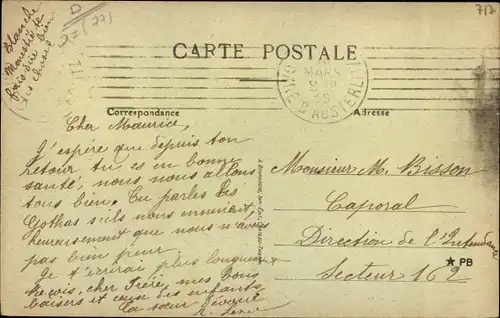 717
D
2=(27)
Blanche
CARTE POSTALE
MARS
D'AUSTERLITZ
Correspondance
Adresse
Cher Maurice,
J'espère que depuis ton
retour tu es en bonne
santé, nous nous allons
tous bien. Tu parles les
Gothas s'ils nous ennuient,
heureusement que nous n'avons
pas bien peur.
Je t'écrirai plus longuement
cher Frère, mes bons
baisers et ceux des enfants,
Ta sœur
Monsieur M. Bisson
Caporal
Direction de l'Intendance
Secteur 162
★PB